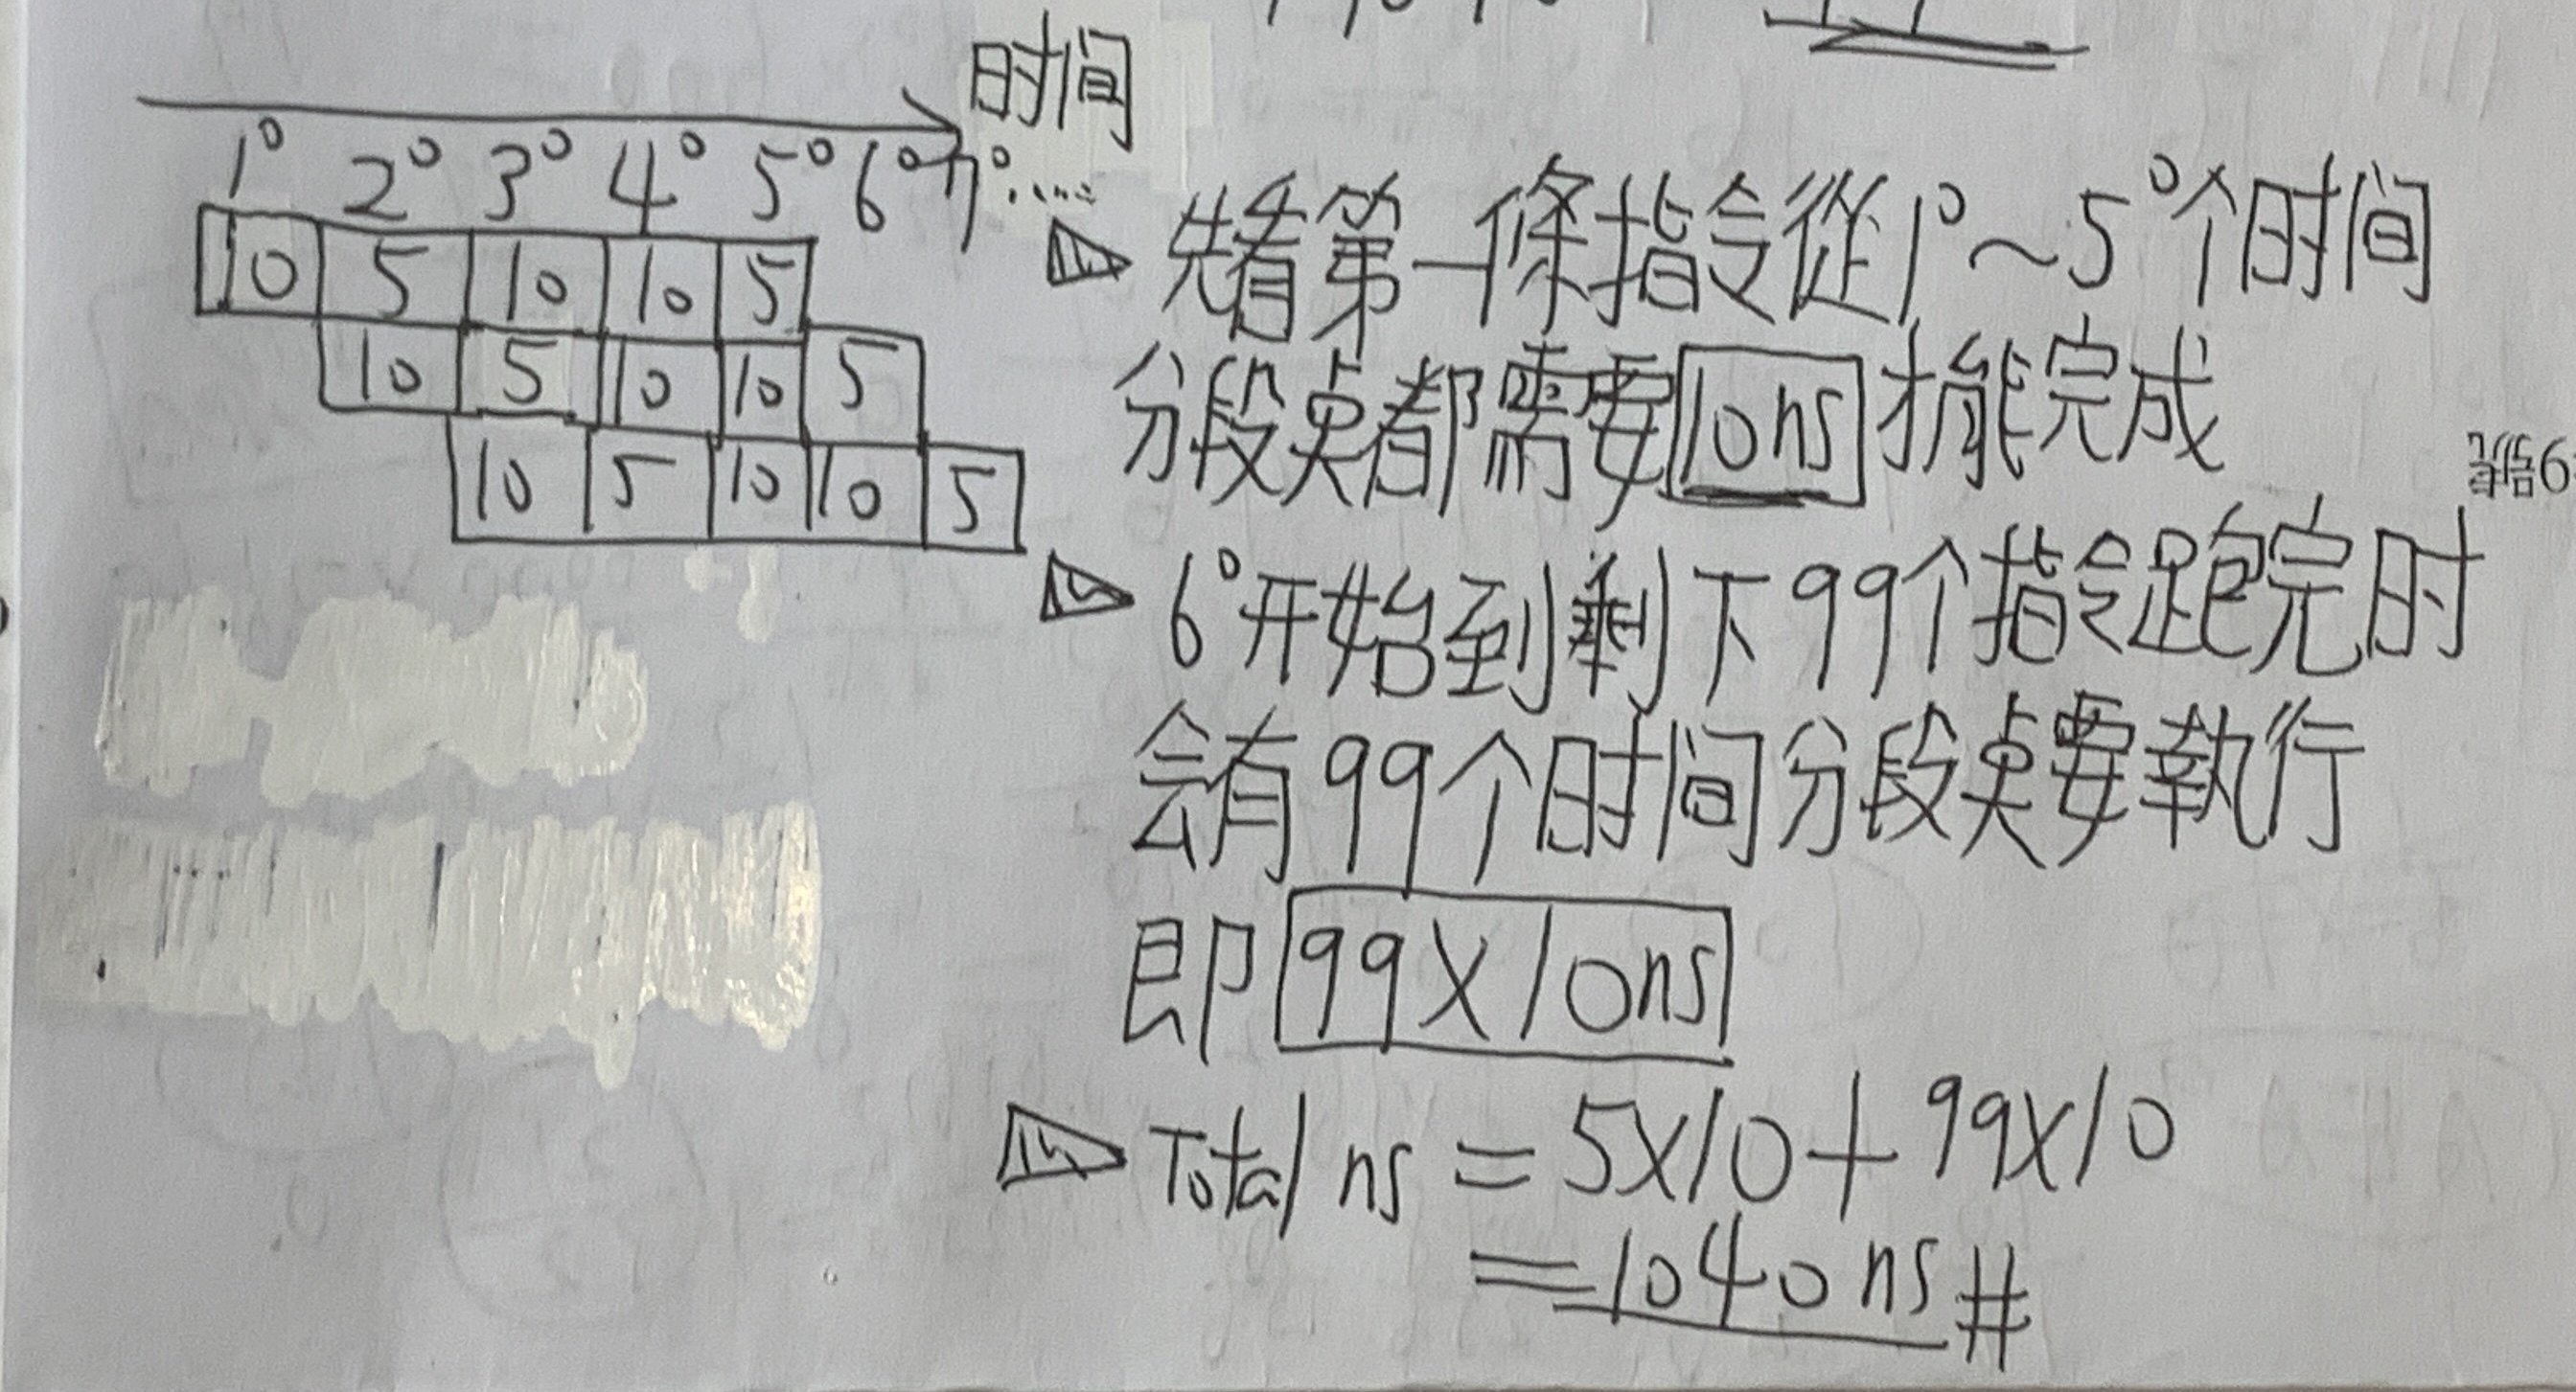 时间
1° 2° 3° 4° 5° 6° 7°.....
10 5 10 10 5
10 5 10 10 5
10 5 10 10 5
先看第一條指令從1°~5°个时间
分段点都需要10ns才能完成
6°开始到剩下99个指令跑完时
会有99个时间分段点要執行
即99X10ns
Total ns = 5X10+99X10
=1040ns#